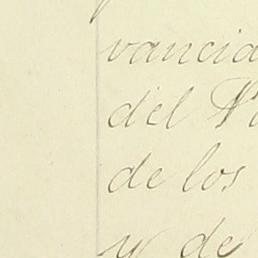 vancida
del
de los
y de